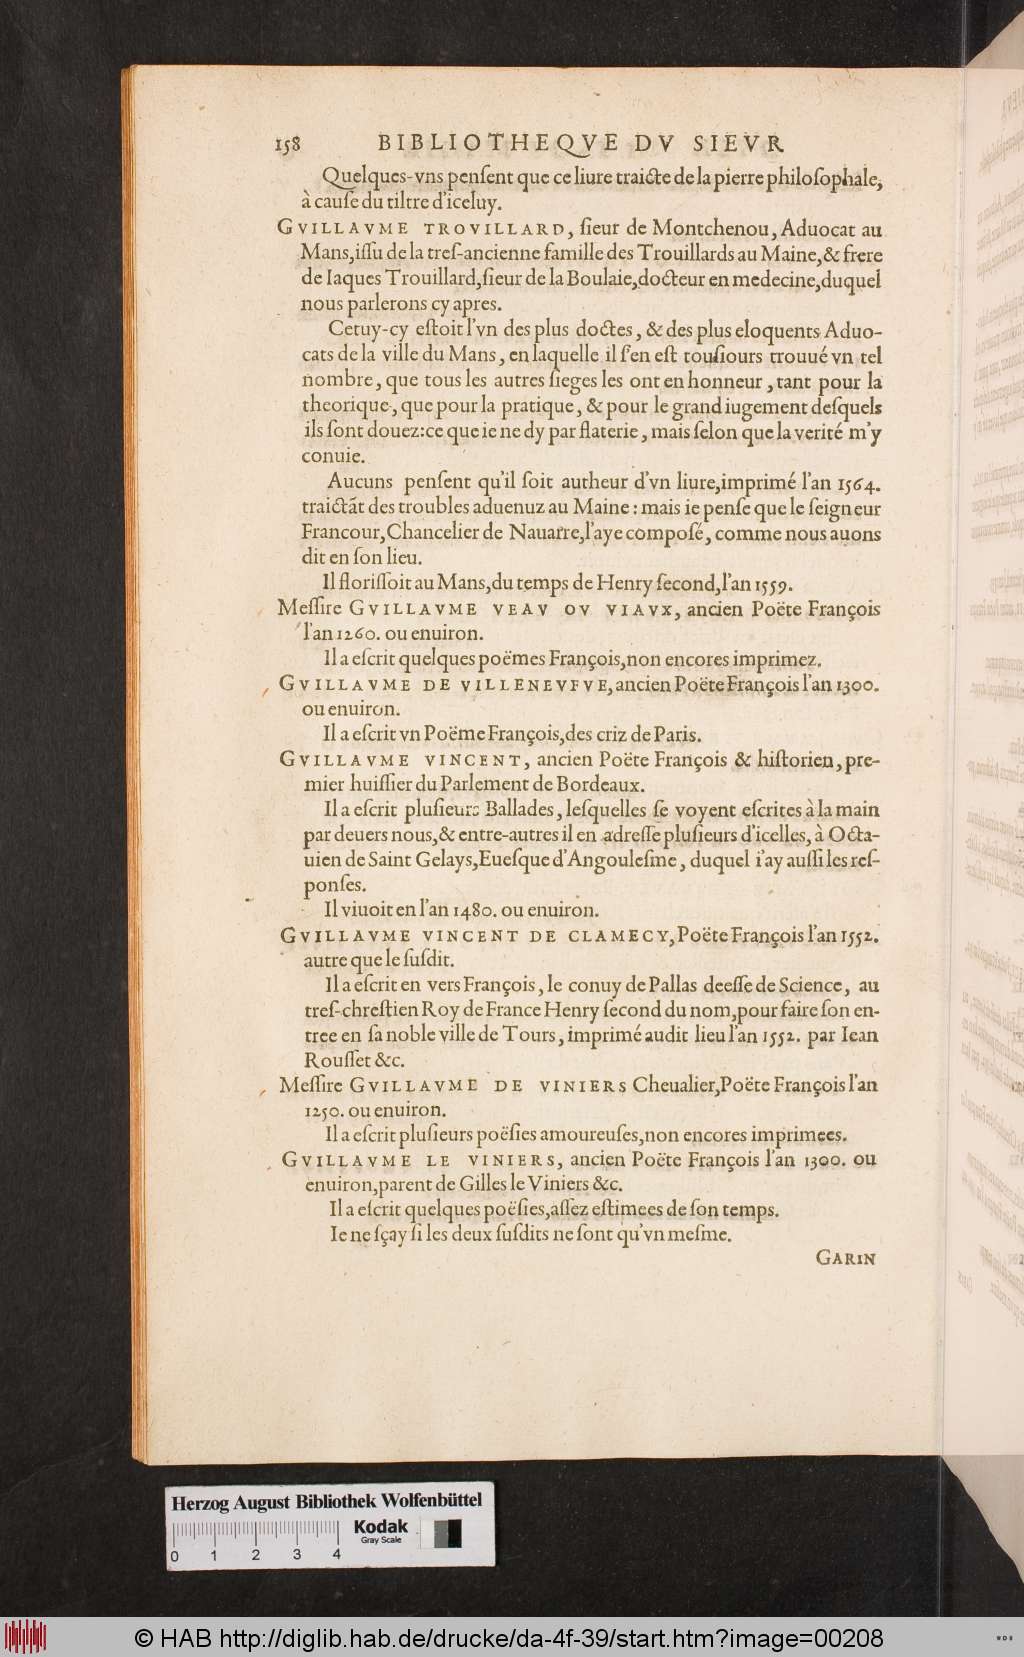 158 BIBLIOTHEQVE DV SIEVR
Quelques-vns penſent que ce liure traicte de la pierre philoſophale,
à cauſe du tiltre d'iceluy.
GVILLAVME TROVILLARD, ſieur de Montchenou, Aduocat au
Mans, iſſu de la treſ-ancienne famille des Trouillards au Maine, & frere
de Iaques Trouillard, ſieur de la Boulaie, docteur en medecine, duquel
nous parlerons cy apres.
Cetuy-cy eſtoit l'vn des plus doctes, & des plus eloquents Aduo-
cats de la ville du Mans, en laquelle il ſ'en eſt touſiours trouué vn tel
nombre, que tous les autres ſieges les ont en honneur, tant pour la
theorique, que pour la pratique, & pour le grand iugement deſquels
ils ſont douez: ce que ie ne dy par flaterie, mais ſelon que la verité m'y
conuie.
Aucuns penſent qu'il ſoit autheur d'vn liure, imprimé l'an 1564.
traictāt des troubles aduenuz au Maine: mais ie penſe que le ſeigneur
Francour, Chancelier de Nauarre, l'aye compoſé, comme nous auons
dit en ſon lieu.
Il floriſſoit au Mans, du temps de Henry ſecond, l'an 1559.
Meſſire GVILLAVME VEAV OV VIAVX, ancien Poëte François
l'an 1260. ou enuiron.
Il a eſcrit quelques poëmes François, non encores imprimez.
GVILLAVME DE VILLENEVFVE, ancien Poëte François l'an 1300.
ou enuiron.
Il a eſcrit vn Poëme François, des criz de Paris.
GVILLAVME VINCENT, ancien Poëte François & hiſtorien, pre-
mier huiſſier du Parlement de Bordeaux.
Il a eſcrit pluſieurs Ballades, leſquelles ſe voyent eſcrites à la main
par deuers nous, & entre-autres il en adreſſe pluſieurs d'icelles, à Octa-
uien de Saint Gelays, Eueſque d'Angouleſme, duquel i'ay auſſi les reſ-
ponſes.
Il viuoit en l'an 1480. ou enuiron.
GVILLAVME VINCENT DE CLAMECY, Poëte François l'an 1552.
autre que le ſuſdit.
Il a eſcrit en vers François, le conuy de Pallas deeſſe de Science, au
treſ-chreſtien Roy de France Henry ſecond du nom, pour faire ſon en-
tree en ſa noble ville de Tours, imprimé audit lieu l'an 1552. par Iean
Rouſſet &c.
Meſſire GVILLAVME DE VINIERS Cheualier, Poëte François l'an
1250. ou enuiron.
Il a eſcrit pluſieurs poëſies amoureuſes, non encores imprimees.
GVILLAVME LE VINIERS, ancien Poëte François l'an 1300. ou
enuiron, parent de Gilles le Viniers &c.
Il a eſcrit quelques poëſies, aſſez eſtimees de ſon temps.
Ie ne ſçay ſi les deux ſuſdits ne ſont qu'vn meſme.
GARIN
Herzog August Bibliothek Wolfenbüttel
Kodak
Gray Scale
0 1 2 3 4
© HAB http://diglib.hab.de/drucke/da-4f-39/start.htm?image=00208